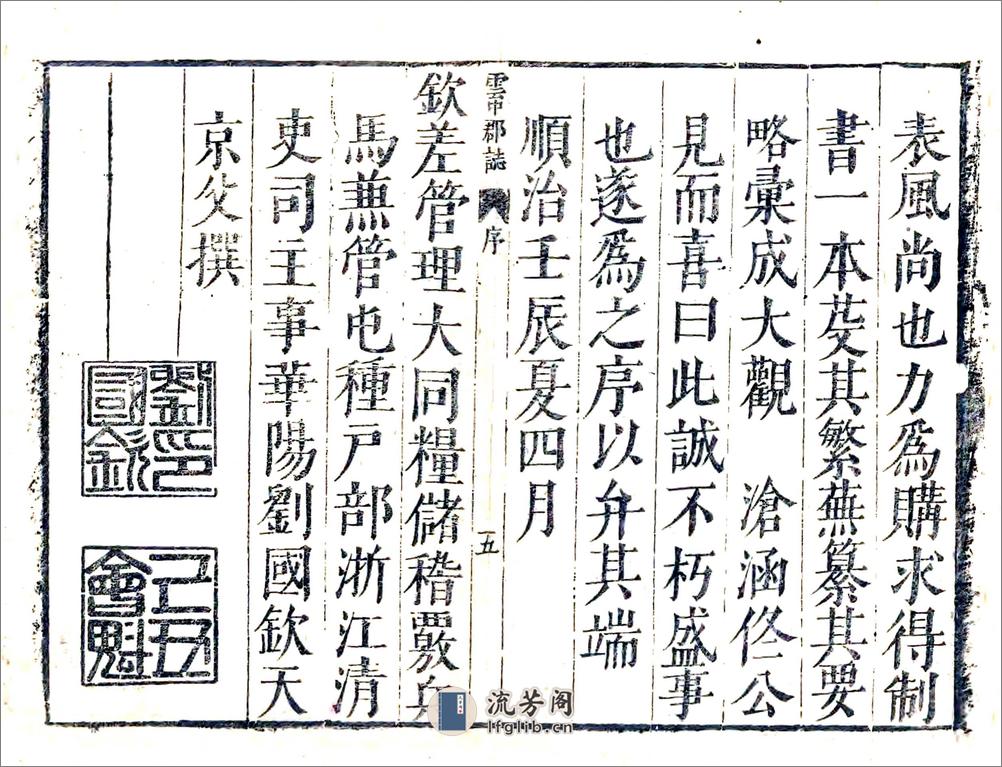 表風尚也力爲購求得制
書一本芟其繁蕪纂其要
略彙成大觀　滄涵佟公
見而喜曰此誠不朽盛事
也遂爲之序以弁其端
順治壬辰夏四月
雲中郡誌 序 五
欽差管理大同糧儲稽覈兵
馬兼管屯種戸部浙江清
吏司主事華陽劉國欽天
京父撰
劉印
國欽
己丑
會魁
流芳阁
lfglib.cn